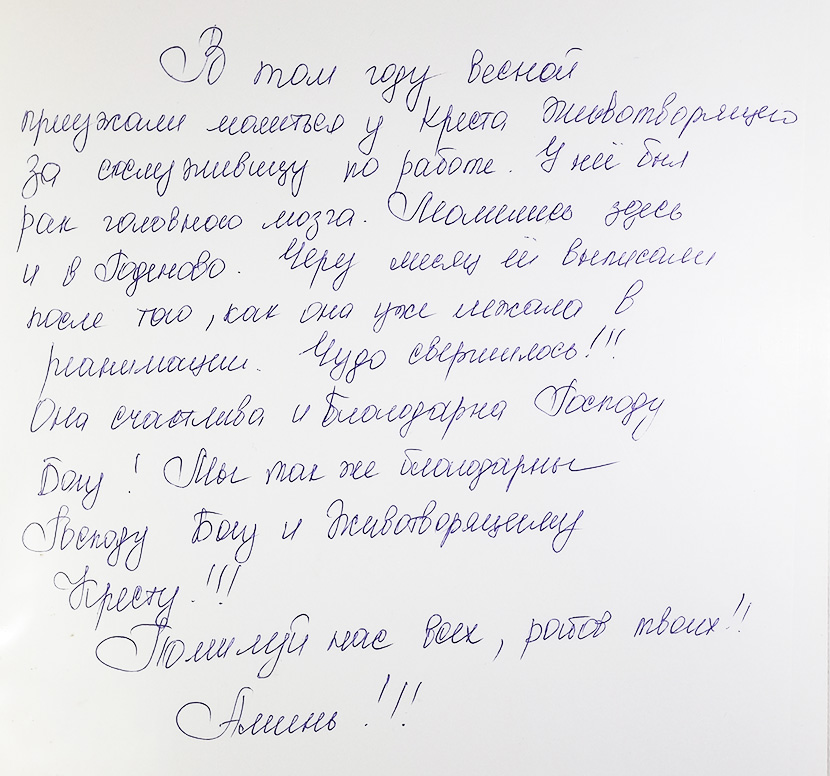 В том году весной
приезжали молиться у Креста Животворящего
за сослуживицу по работе. У неё был
рак головного мозга. Молились здесь
и в Годеново. Через месяц её выписали
после того, как она уже лежала в
реанимации. Чудо свершилось!!!
Она счастлива и благодарна Господу
Богу! Мы так же благодарны
Господу Богу и Животворящему
Кресту!!!
Помилуй нас всех, рабов твоих!!
Аминь!!!